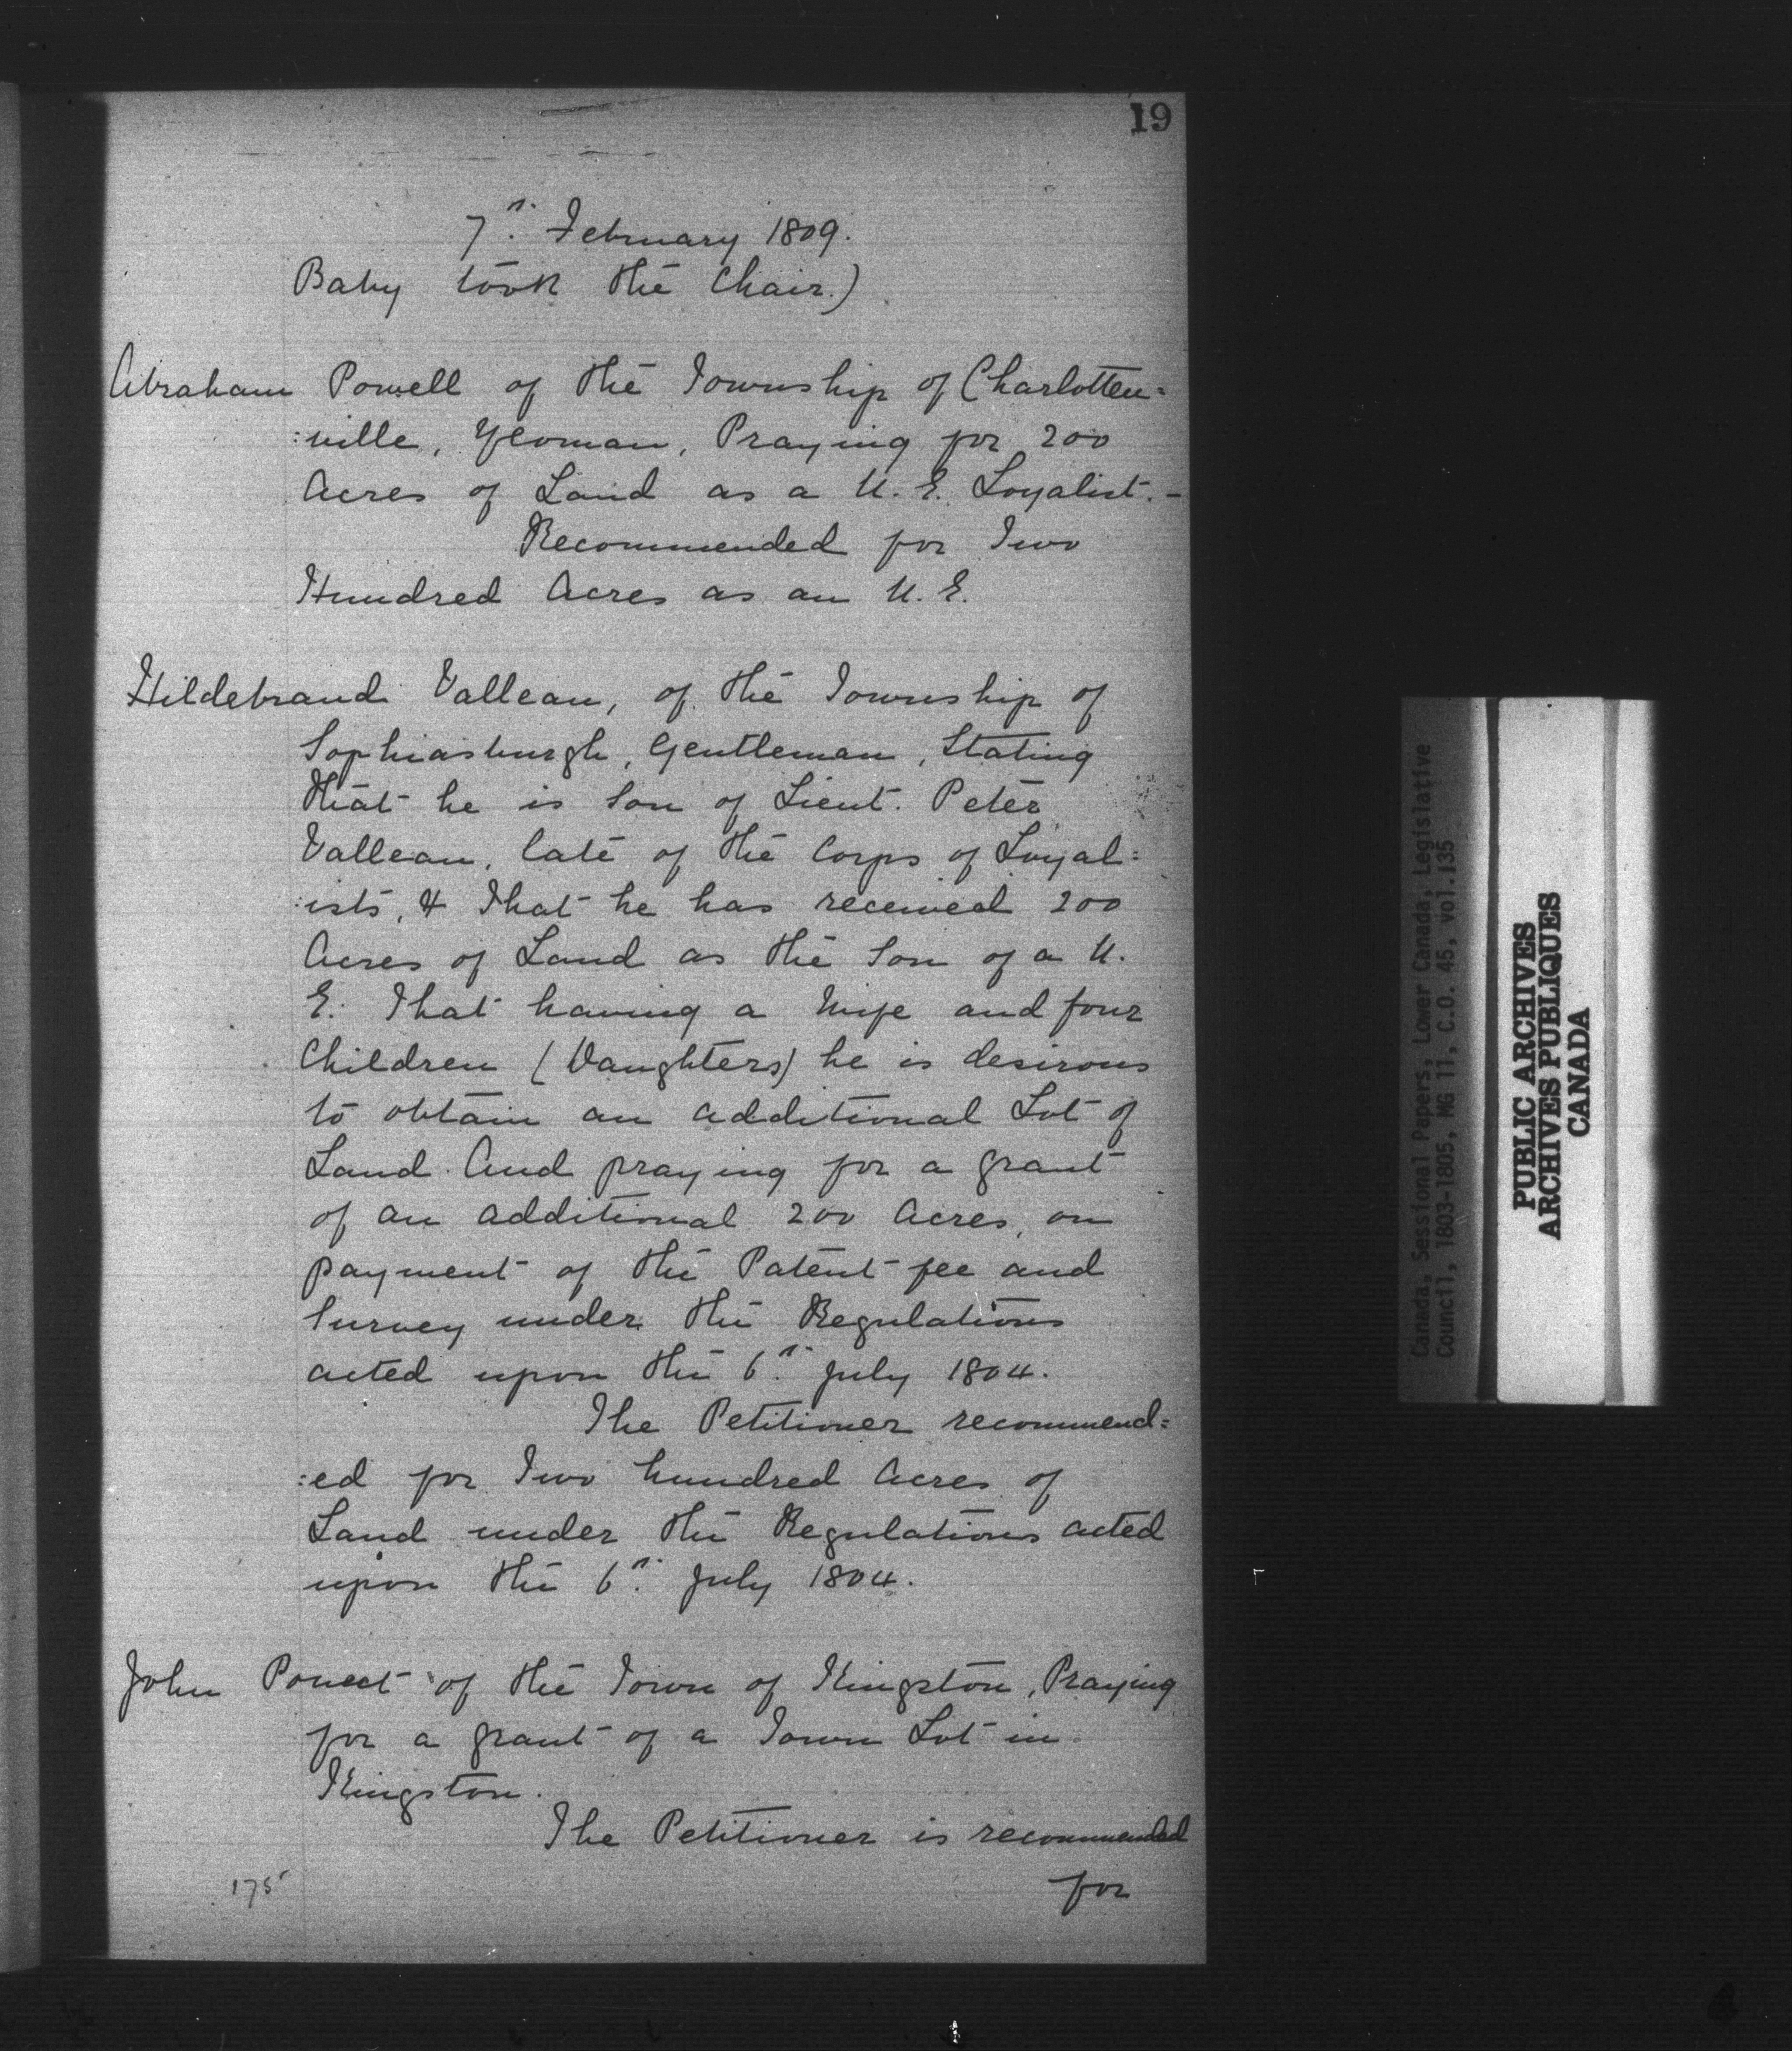 19
7th. February 1809.
Baby took the Chair.)
Abraham Powell of the Township of Charlotten=
:ville, Yeoman, Praying for 200
Acres of Land as a U. E. Loyalist. -
Recommended for Two
Hundred Acres as an U. E.
Hildebrand Valleau, of the Township of
Sophiasburgh, Gentleman, Stating
that he is Son of Lieut. Peter
Valleau, late of the Corps of Loyal=
:ists, & That he has received 200
Acres of Land as the Son of a U.
E. That having a Wife and four
Children (Daughters) he is desirous
to obtain an additional Lot of
Land. And praying for a grant
of an additional 200 Acres, on
payment of the Patent fee and
Survey under the Regulations
acted upon the 6th. July 1804.
The Petitioner recommend=
:ed for Two hundred Acres of
Land under the Regulations acted
upon the 6th. July 1804.
John of the Town of Kingston, Praying
for a grant of a Town Lot in
Kingston.
The Petitioner is recommended
for
175
Canada, Sessional Papers, Lower Canada, Legislative
Council, 1803-1805, MG 11, C.O. 45, vol.135
PUBLIC ARCHIVES
ARCHIVES PUBLIQUES
CANADA